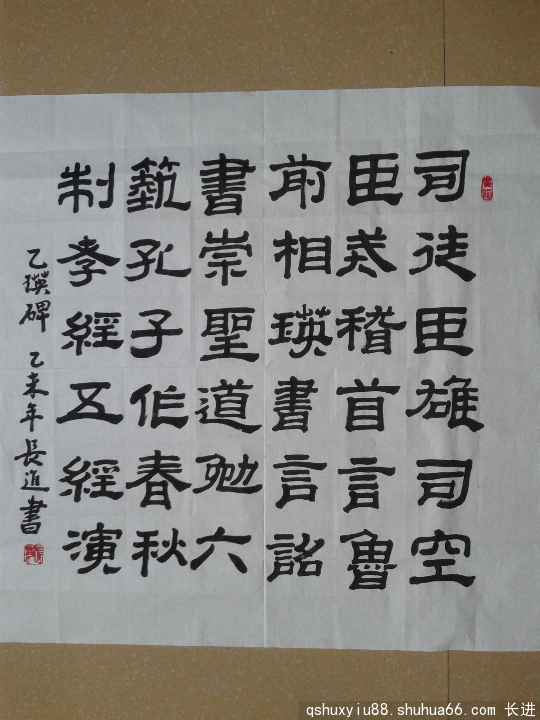 司徒臣雄司空
臣戒稽首言魯
前相瑛書言詔
書崇聖道勉六
藝孔子作春秋
制孝經五經演
乙瑛碑 乙未年長進書
qshuxyiu88.shuhua66.com 长进